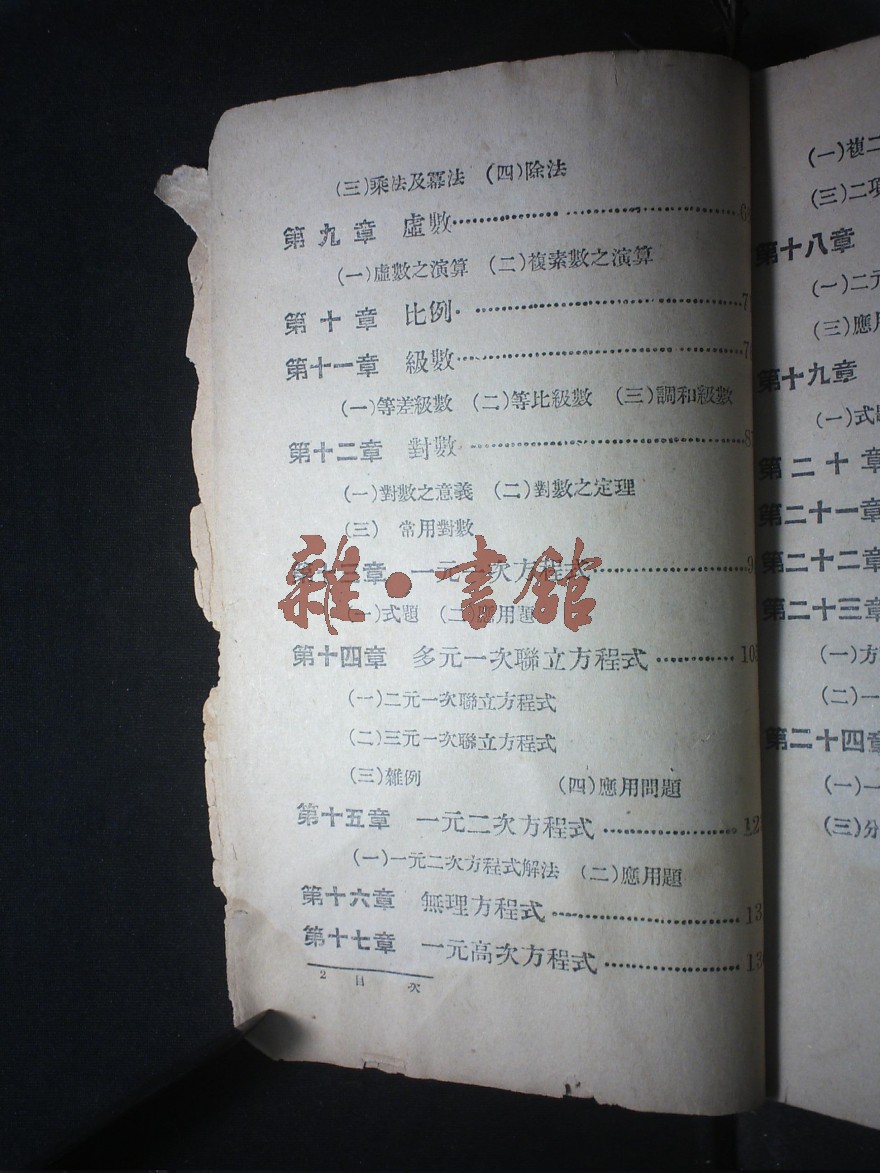 (三)乘法及冪法　(四)除法
第九章　虛數
(一)虛數之演算　(二)複素數之演算
第十章　比例
第十一章　級數
(一)等差級數　(二)等比級數　(三)調和級數
第十二章　對數
(一)對數之意義　(二)對數之定理
(三)　常用對數
第十三章　一元一次方程式
(一)式題　(二)應用題
第十四章　多元一次聯立方程式
(一)二元一次聯立方程式
(二)三元一次聯立方程式
(三)雜例　(四)應用問題
第十五章　一元二次方程式
(一)一元二次方程式解法　(二)應用題
第十六章　無理方程式
第十七章　一元高次方程式
2　目　次
雜·書館
(一)複二
(三)二項
第十八章
(一)二元
(三)應用
第十九章
(一)式
第二十章
第二十一章
第二十二章
第二十三章
(一)方
(二)一
第二十四章
(一)一
(三)分